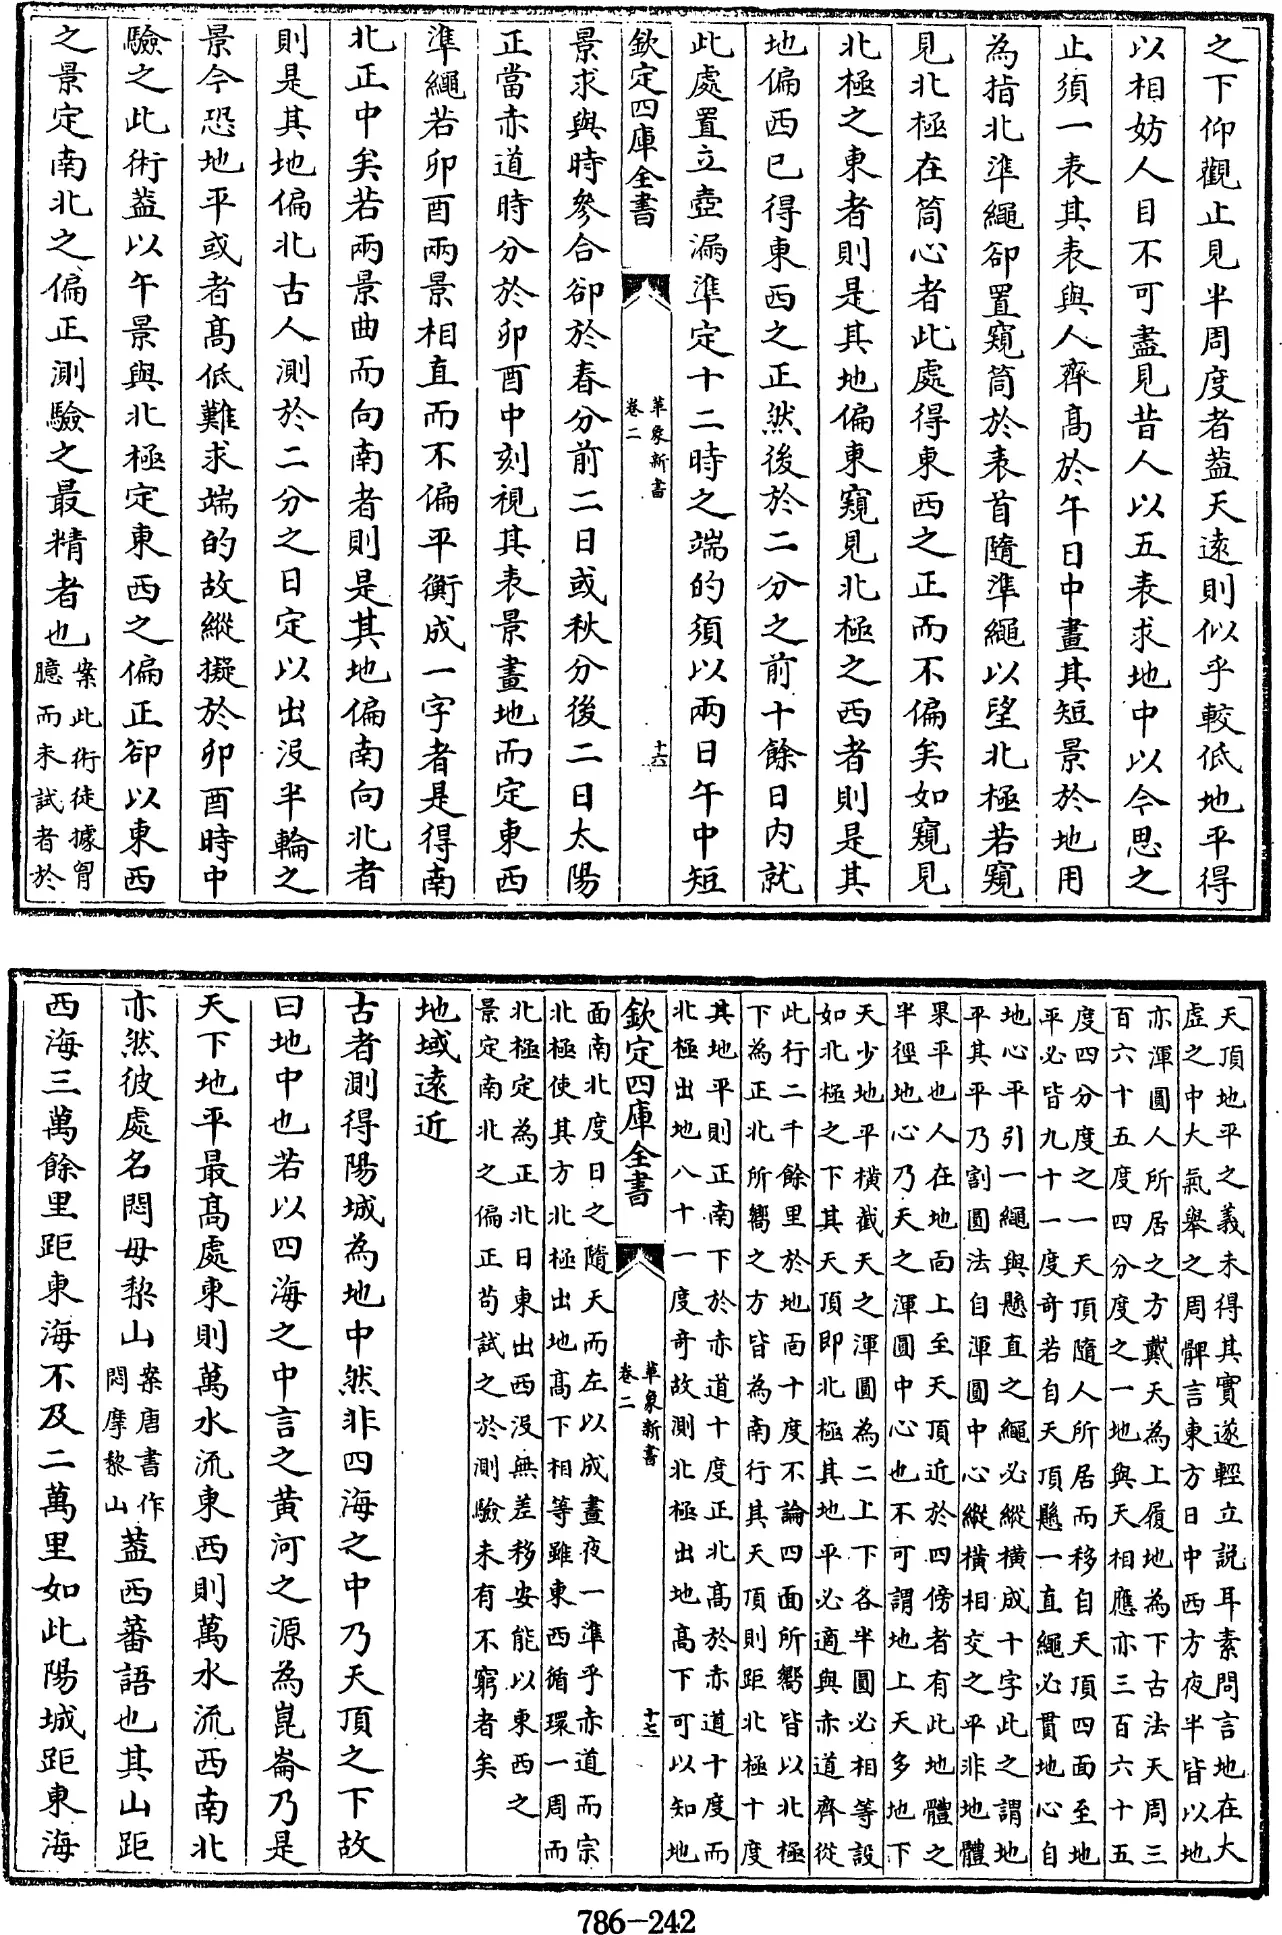 之下仰觀止見半周度者葢天遠則似乎較低地平得
以相妨人目不可盡見昔人以五表求地中以今思之
止須一表其表與人齊髙於午日中畫其短景於地用
為指北準繩卻置窺筒於表首隨準繩以望北極若窺
見北極在筒心者此處得東西之正而不偏矣如窺見
北極之東者則是其地偏東窺見北極之西者則是其
地偏西已得東西之正然後於二分之前十餘日内就
此處置立壺漏準定十二時之端的須以兩日午中短
欽定四庫全書
革象新書
卷二
十六
景求與時參合卻於春分前二日或秋分後二日太陽
正當赤道時分於卯酉中刻視其表景畫地而定東西
準繩若卯酉兩景相直而不偏平衡成一字者是得南
北正中矣若兩景曲而向南者則是其地偏南向北者
則是其地偏北古人測於二分之日定以出沒半輪之
景今恐地平或者髙低難求端的故縱擬於卯酉時中
驗之此術葢以午景與北極定東西之偏正卻以東西
之景定南北之偏正測驗之最精者也
案此術徒據胷
臆而未試者於
天頂地平之義未得其實遂輕立説耳素問言地在大
虛之中大氣舉之周髀言東方日中西方夜半皆以地
亦渾圓人所居之方戴天為上履地為下古法天周三
百六十五度四分度之一地與天相應亦三百六十五
度四分度之一天頂隨人所居而移自天頂四面至地
平必皆九十一度奇若自天頂懸一直繩必貫地心自
地心平引一繩與懸直之繩必縱横成十字此之謂地
平其平乃割圓法自渾圓中心縱横相交之平非地體
果平也人在地面上至天頂近於四傍者有此地體之
半徑地心乃天之渾圓中心也不可謂地上天多地下
天少地平横截天之渾圓為二上下各半圓必相等設
如北極之下其天頂即北極其地平必適與赤道齊從
此行二千餘里於地面十度不論四面所嚮皆以北極
下為正北所嚮之方皆為南行其天頂則距北極十度
其地平則正南下於赤道十度正北髙於赤道十度而
北極出地八十一度奇故測北極出地髙下可以知地
欽定四庫全書
革象新書
卷二
十七
面南北度日之隨天而左以成晝夜一準乎赤道而宗
北極使其方北極出地髙下相等雖東西循環一周而
北極定為正北日東出西沒無差移安能以東西之
景定南北之偏正苟試之於測驗未有不窮者矣
地域遠近
古者測得陽城為地中然非四海之中乃天頂之下故
曰地中也若以四海之中言之黃河之源為崑崙乃是
天下地平最髙處東則萬水流東西則萬水流西南北
亦然彼處名悶毋黎山
案唐書作
悶摩黎山
葢西蕃語也其山距
西海三萬餘里距東海不及二萬里如此陽城距東海
786-242